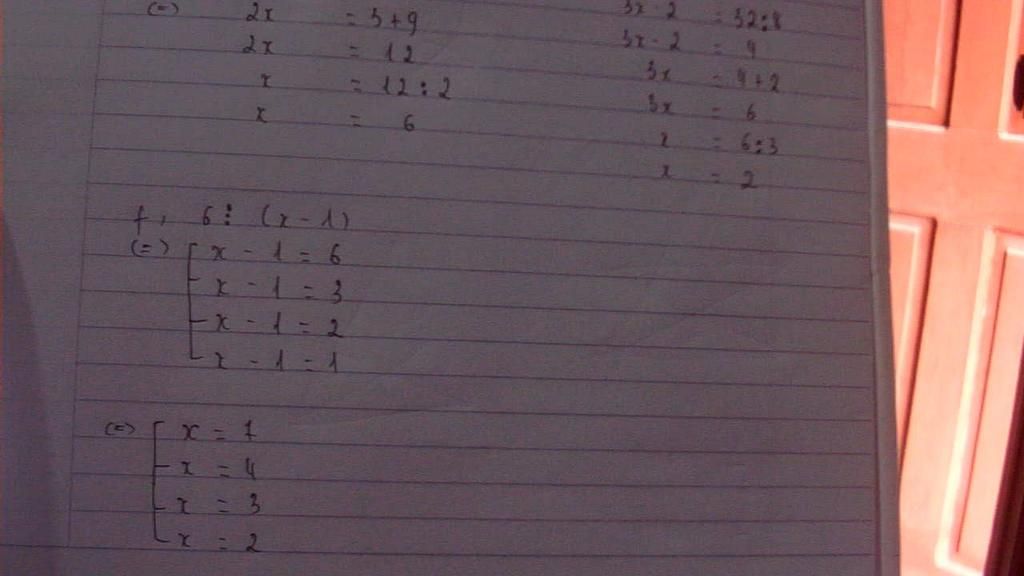 (=) 2x = 3+9
2x = 12
x = 12 : 2
x = 6
3x - 2 = 32:8
3x - 2 = 4
3x = 4+2
3x = 6
x = 6:3
x = 2
f, 6 ⋮ (x - 1)
(=) [ x - 1 = 6
x - 1 = 3
x - 1 = 2
x - 1 = 1
(=) [ x = 7
x = 4
x = 3
x = 2